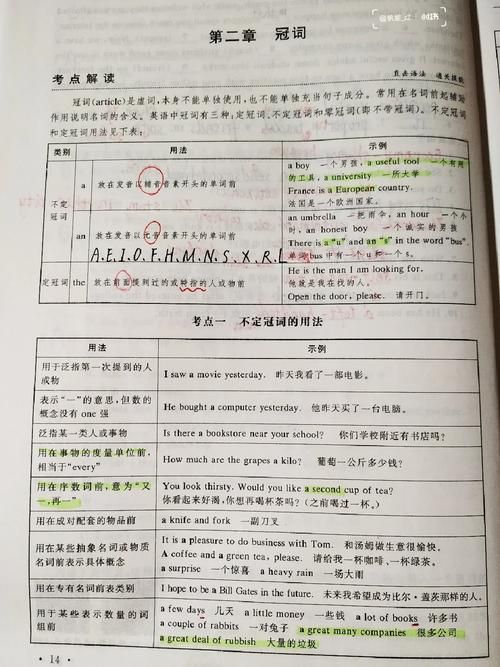 小红书
第二章 冠词
考点解读
直击语法 通关提能
冠词(article)是虚词,本身不能单独使用,也不能单独充当句子成分。常用在名词前起辅助
作用说明名词的含义。英语中冠词有三种,定冠词、不定冠词和零冠词(即不带冠词)。不定冠词
和定冠词用法见下表:
类别 用法 示例
不定冠词
a 放在发音以辅音音素开头的单词前
a boy 一个男孩, a useful tool 一个有用
的工具, a university 一所大学
France is a European country.
法国是一个欧洲国家。
an 放在发音以元音音素开头的单词前
A.E.I.O.F.H.M.N.S.X.R.L
an umbrella 一把雨伞, an hour 一个小
时, an honest boy 一个诚实的男孩
There is a "u" and an "s" in the word "bus".
单词 bus 中有一个 u 和一个 s。
定冠词 the 放在前面提到过的或特指的人或物前
He is the man I am looking for.
他就是我在找的人。
Open the door, please. 请开门。
考点一 不定冠词的用法
用法 示例
用于泛指第一次提到的人
或物
I saw a movie yesterday. 昨天我看了一部电影。
表示“一”的意思,但数的
概念没有 one 强
He bought a computer yesterday. 他昨天买了一台电脑。
泛指某一类人或事物 Is there a bookstore near your school? 你们学校附近有书店吗?
用在事物的度量单位前,
相当于“every”
How much are the grapes a kilo? 葡萄一公斤多少钱?
用在序数词前,意为“又
一,再一”
You look thirsty. Would you like a second cup of tea?
你看起来好渴,你想再喝杯茶吗?(之前喝过一杯。)
用在成对配套的物品前 a knife and fork 一副刀叉
用在某些抽象名词或物质
名词前表示具体概念
It is a pleasure to do business with Tom. 和汤姆做生意很愉快。
A coffee and a green tea, please. 请给我一杯咖啡、一杯绿茶。
a surprise 一个惊喜 a heavy rain 一场大雨
用在专有名词前表类别 I hope to be a Bill Gates in the future. 未来我希望成为比尔·盖茨那样的人。
用于某些表示数量的词
组前
a few days 几天 a little money 一些钱 a lot of books 许多书
a couple of rabbits 一对兔子 a great many companies 很多公司
a great deal of rubbish 大量的垃圾
· 14 ·